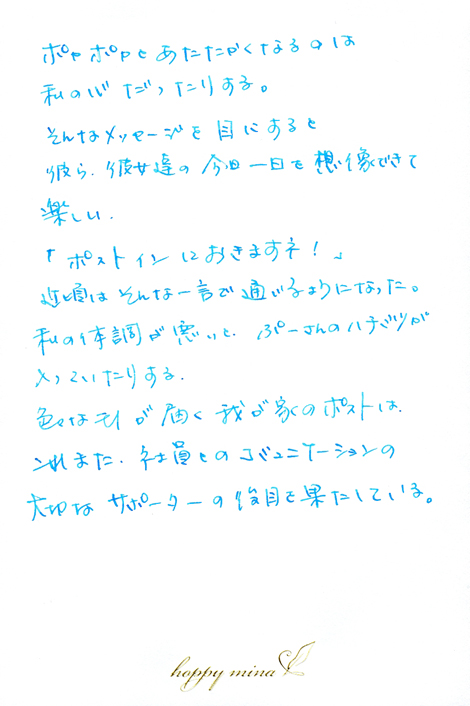 ポカポカとあたたかくなるのは
私の心だったりする。
そんなメッセージを目にすると
彼ら、彼女達の今日一日を想像できて
楽しい。
「ポストインにおきますネ！」
近頃はそんな一言で通じるようになった。
私の体調が悪いと、ぷーさんのハチミツが
入っていたりする。
色々なモノが届く我が家のポストは、
これまた、社員とのコミュニケーションの
大切なサポーターの役目を果たしている。
happy mina